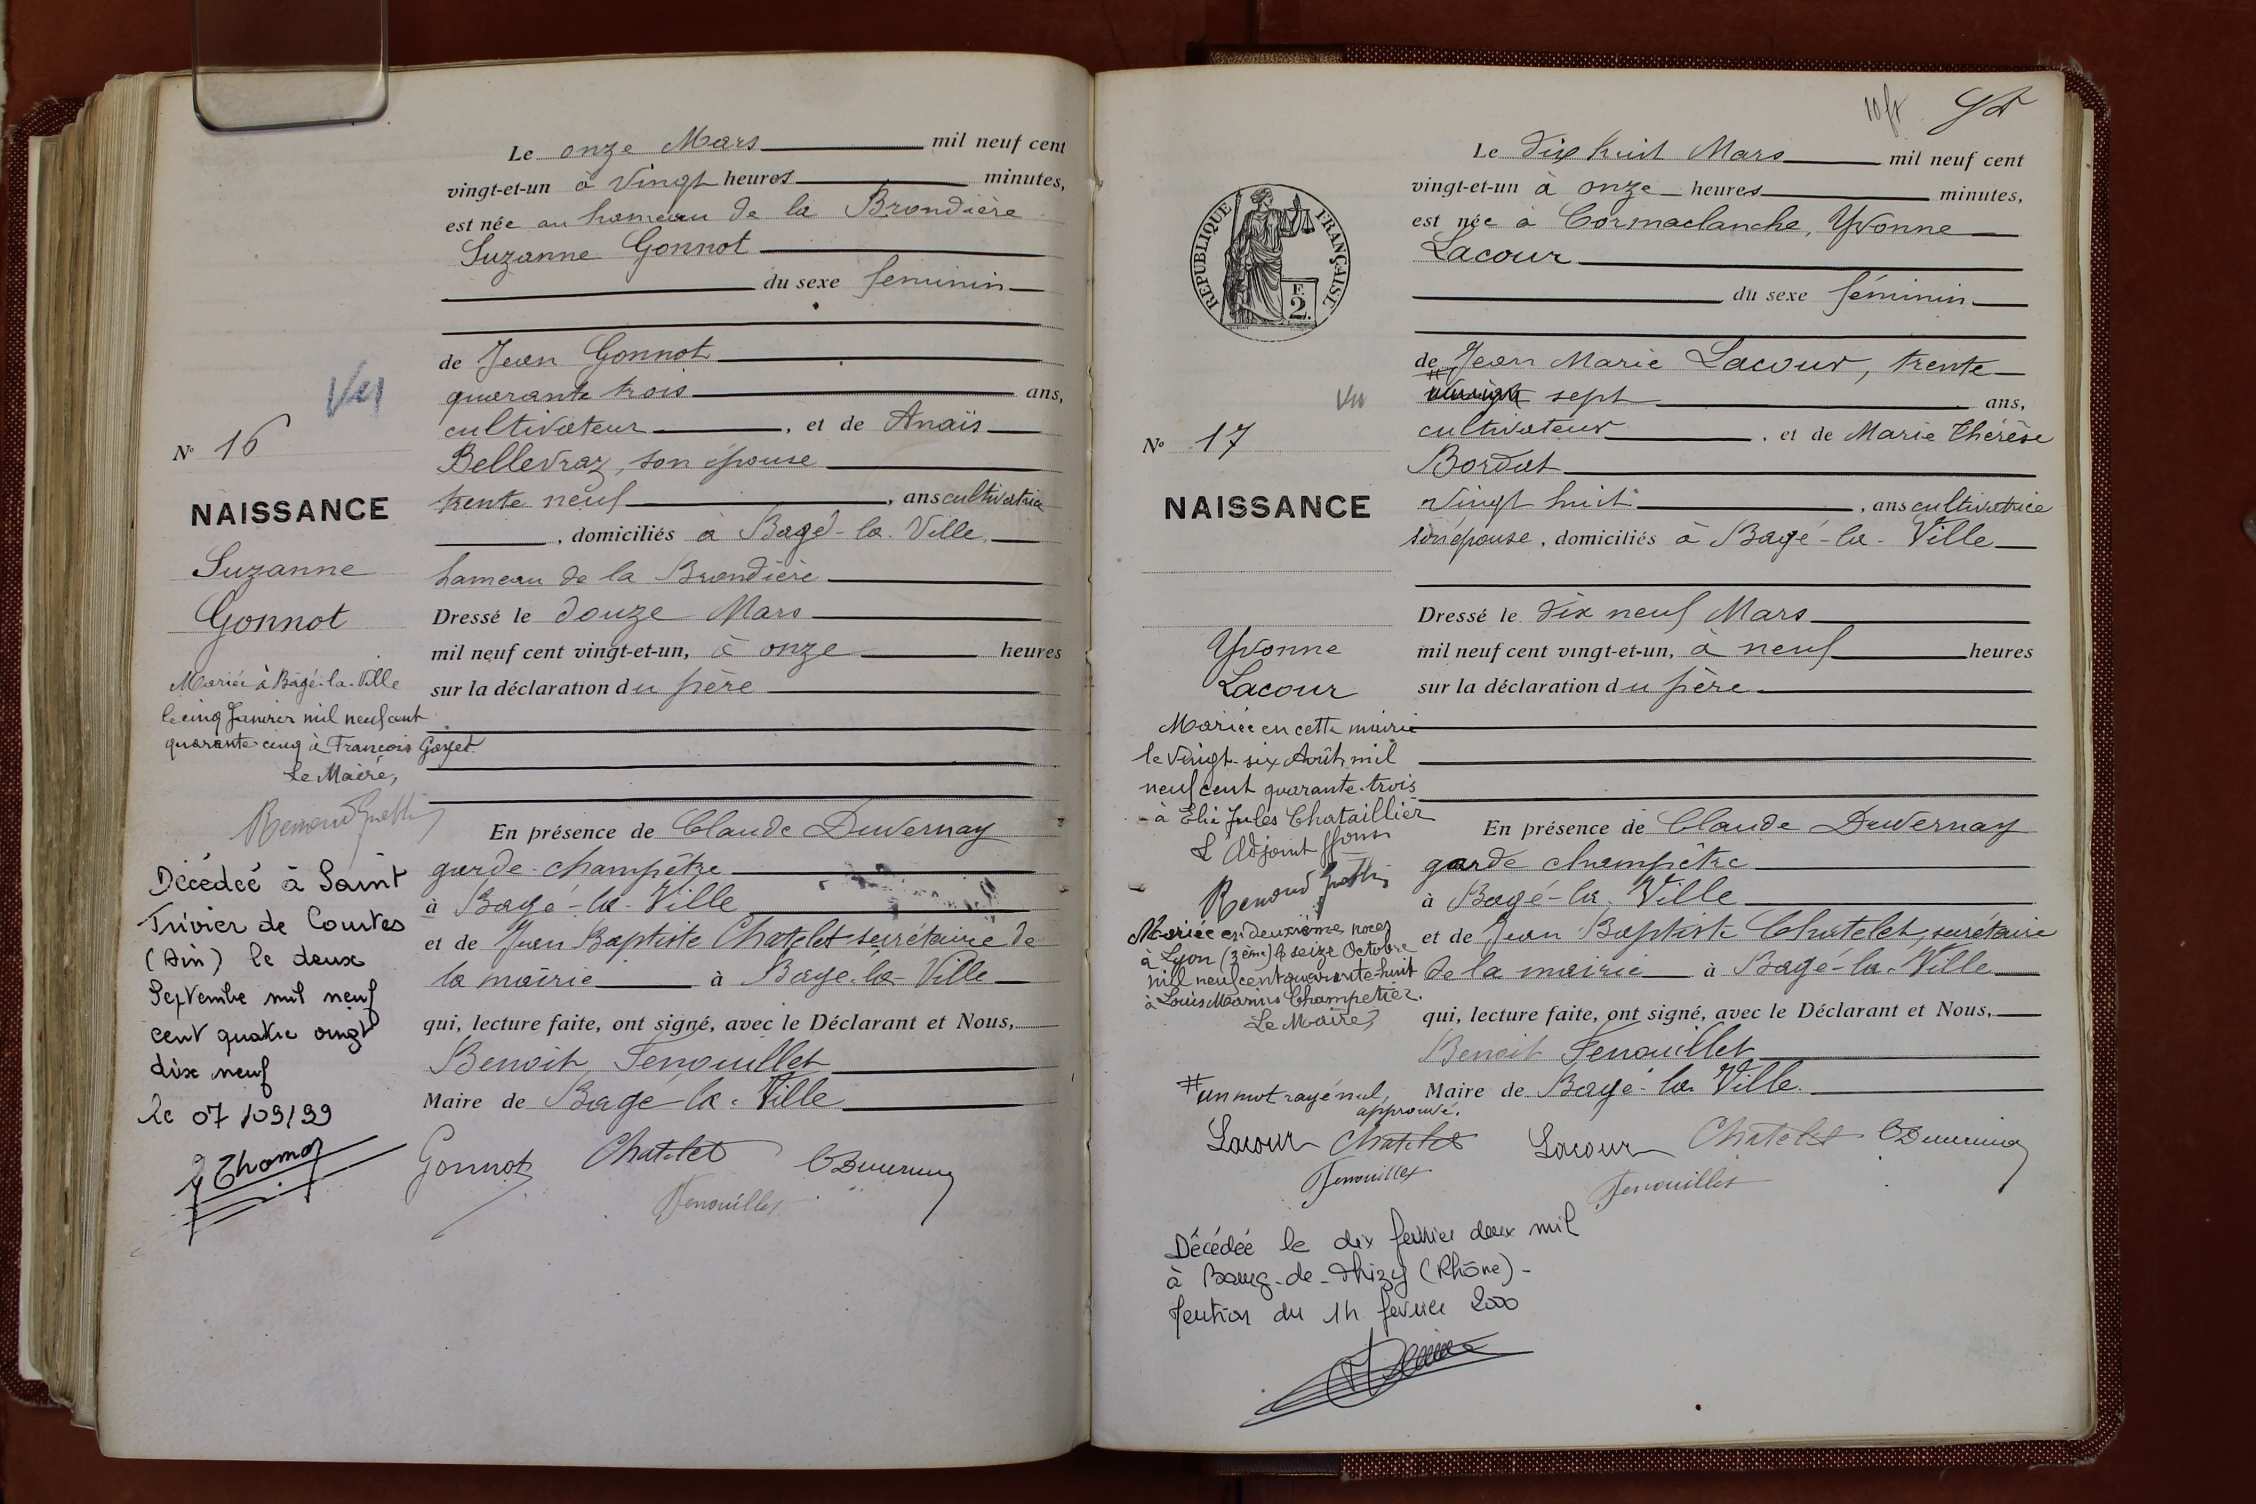 Le onze Mars mil neuf cent
vingt-et-un à vingt heures minutes,
est née au hameau de la Brondière
Suzanne Gonnot
du sexe féminin
de Jean Gonnot
quarante trois ans,
cultivateur, et de Anaïs
Bellevraz, son épouse
trente neuf, ans cultivatrice
, domiciliés à Bagé-la-Ville,
hameau de la Brondière
Dressé le douze Mars
mil neuf cent vingt-et-un, à onze heures
sur la déclaration du père
En présence de Claude Duvernay
garde-champêtre
à Bagé-la-Ville
et de Jean Baptiste Chatelet secrétaire de
la mairie à Bagé-la-Ville
qui, lecture faite, ont signé, avec le Déclarant et Nous,
Benoit Fenouillet
Maire de Bagé-la-Ville
Gonnot Chatelet CDuvernay
Fenouillet
Vu
N° 16
NAISSANCE
Suzanne
Gonnot
Mariée à Bagé-la-Ville
le cinq Janvier mil neuf cent
quarante cinq à François Gayet
Le Maire,
Décédeé à Saint
Trivier de Courtes
(Ain) le deux
Septembre mil neuf
cent quatre vingt
dix neuf
le 07/09/99
Thomas
10 fr
Le dix huit Mars mil neuf cent
vingt-et-un à onze heures minutes,
est née à Cormaclanche, Yvonne
Lacour
du sexe féminin
de Jean Marie Lacour, trente
# sept ans,
cultivateur, et de Marie Thérèse
Bordat
vingt huit, ans cultivatrice
son épouse, domiciliés à Bagé-la-Ville
Dressé le dix neuf Mars
mil neuf cent vingt-et-un, à neuf heures
sur la déclaration du père
En présence de Claude Duvernay
garde champêtre
à Bagé-la-Ville
et de Jean Baptiste Chatelet, secrétaire
de la mairie à Bagé-la-Ville
qui, lecture faite, ont signé, avec le Déclarant et Nous,
Benoit Fenouillet
Maire de Bagé-la-Ville.
Lacour Chatelet CDuvernay
Fenouillet
REPUBLIQUE FRANÇAISE
F.
2.
Vu
N° 17
NAISSANCE
Yvonne
Lacour
Mariée en cette mairie
le vingt-six Août mil
neuf cent quarante-trois
à Elie Jules Chataillier
L'Adjoint
Mariée en deuxième noces
à Lyon (3ème) le seize Octobre
mil neuf cent quarante-huit
à Louis Marius Champetier.
Le Maire,
# un mot rayé nul,
approuvé.
Lacour Chatelet
Fenouillet
Décédée le dix fevrier deux mil
à Bourg-de-Thizy (Rhône) -
Mention du 14 fevrier 2000